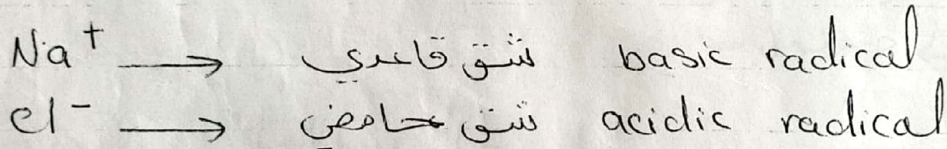 Na⁺ → شق قاعدي basic radical
Cl⁻ → شق حامضي acidic radical